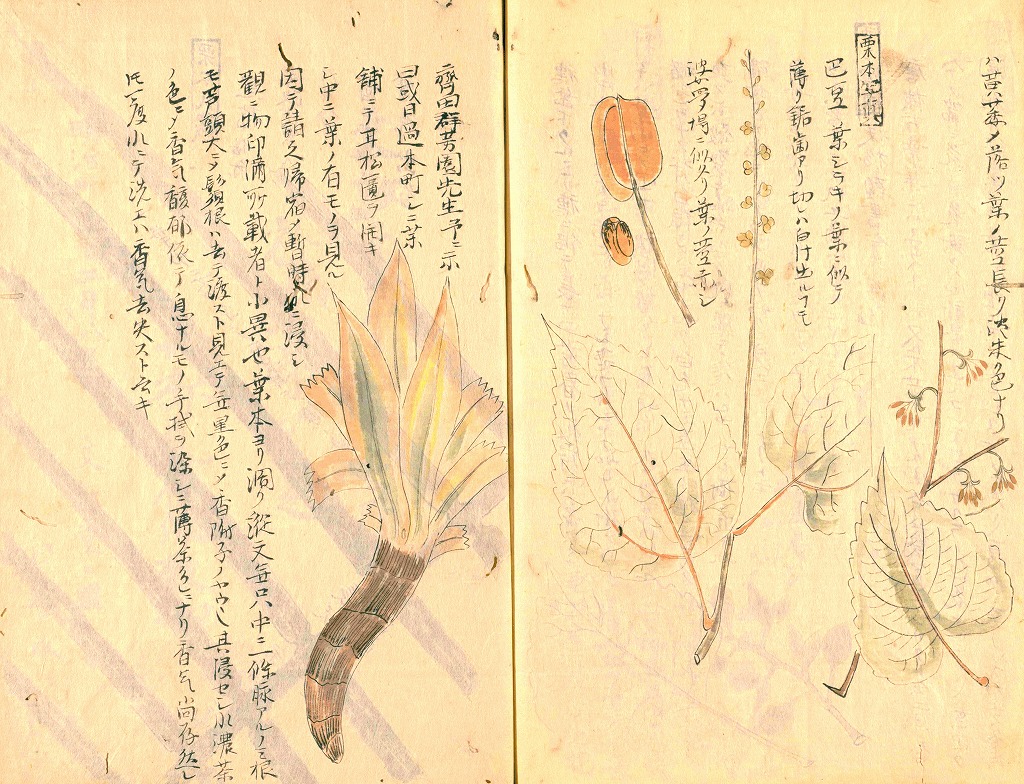 ハ葉茶ノ落ツ葉ノ莖長ク淡朱色ナリ
栗本
巴豆 葉シラキノ葉ニ似テ
薄ク鋸歯アリ切レハ白汁出ルナモ
婆孥場ニ似タリ葉ノ莖赤シ
齊田群芳園先生予ニ示
曰或日過本町シニ薬
舗ニテ甘松匱ヲ開キ
シ中ニ葉ノ有モノヲ見ル
因テ請久帰宿メ暫時水ニ浸シ
觀ニ物印満所載者ト小異也葉本ヨリ濶ク縦文毎口ハ中ニ二條脈アルノミ根
モ芦頭大ニメ鬚根ハ去テ渡スト見エテ無黒色ニメ香附子ノヤウ也其浸セシ水濃茶
ノ色ニメ香気馥郁依テ息ナルモノ手拭ヲ染シニ薄茶色ニナリ香気尚存然レ
𪜈一度水ニテ洗エハ香気去失スト云キ